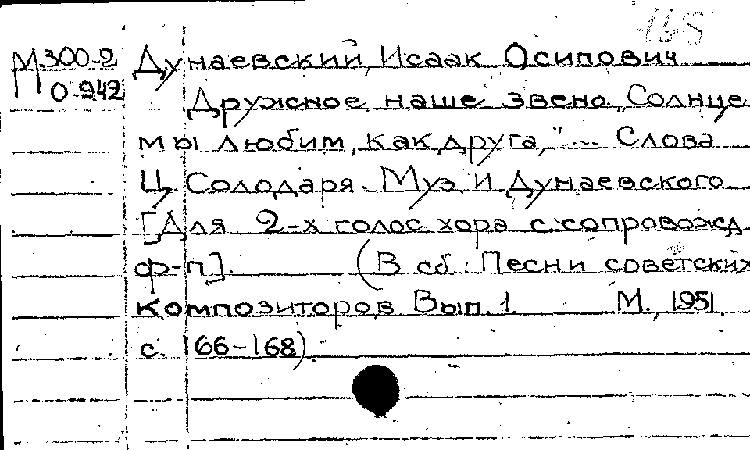 168
М 300-2 Дунаевский, Исаак Осипович
О-242
Дружное наше звено, Солнце
мы любим, как друга,"... Слова
Ц. Солодаря. Муз И Дунаевского
[Для 2-х голос хора с сопровожд
ф-п]. (В сб: Песни советских
композиторов Вып. 1 М., 1951.
с. 166-168)